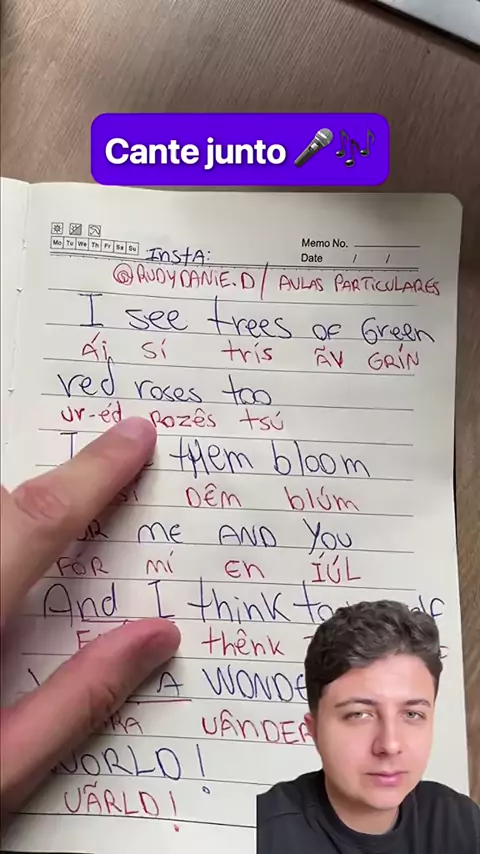 Cante junto
Memo No.
Mo Tu We Th Fr Sa Su
Date / /
InstA:
@RUDYDANIE.D / AULAS PARTICULARES
I see trees of Green
ÁI SÍ trís ÃV GRÍN
red roses too
ur-éd rozês tsú
I them bloom
SÍ DÊM blúm
ME AND YOU
FOR MÍ EN ÍÚL
And I think
thênk
A WONDE
UÂNDER
WORLD!
VÃRLD!